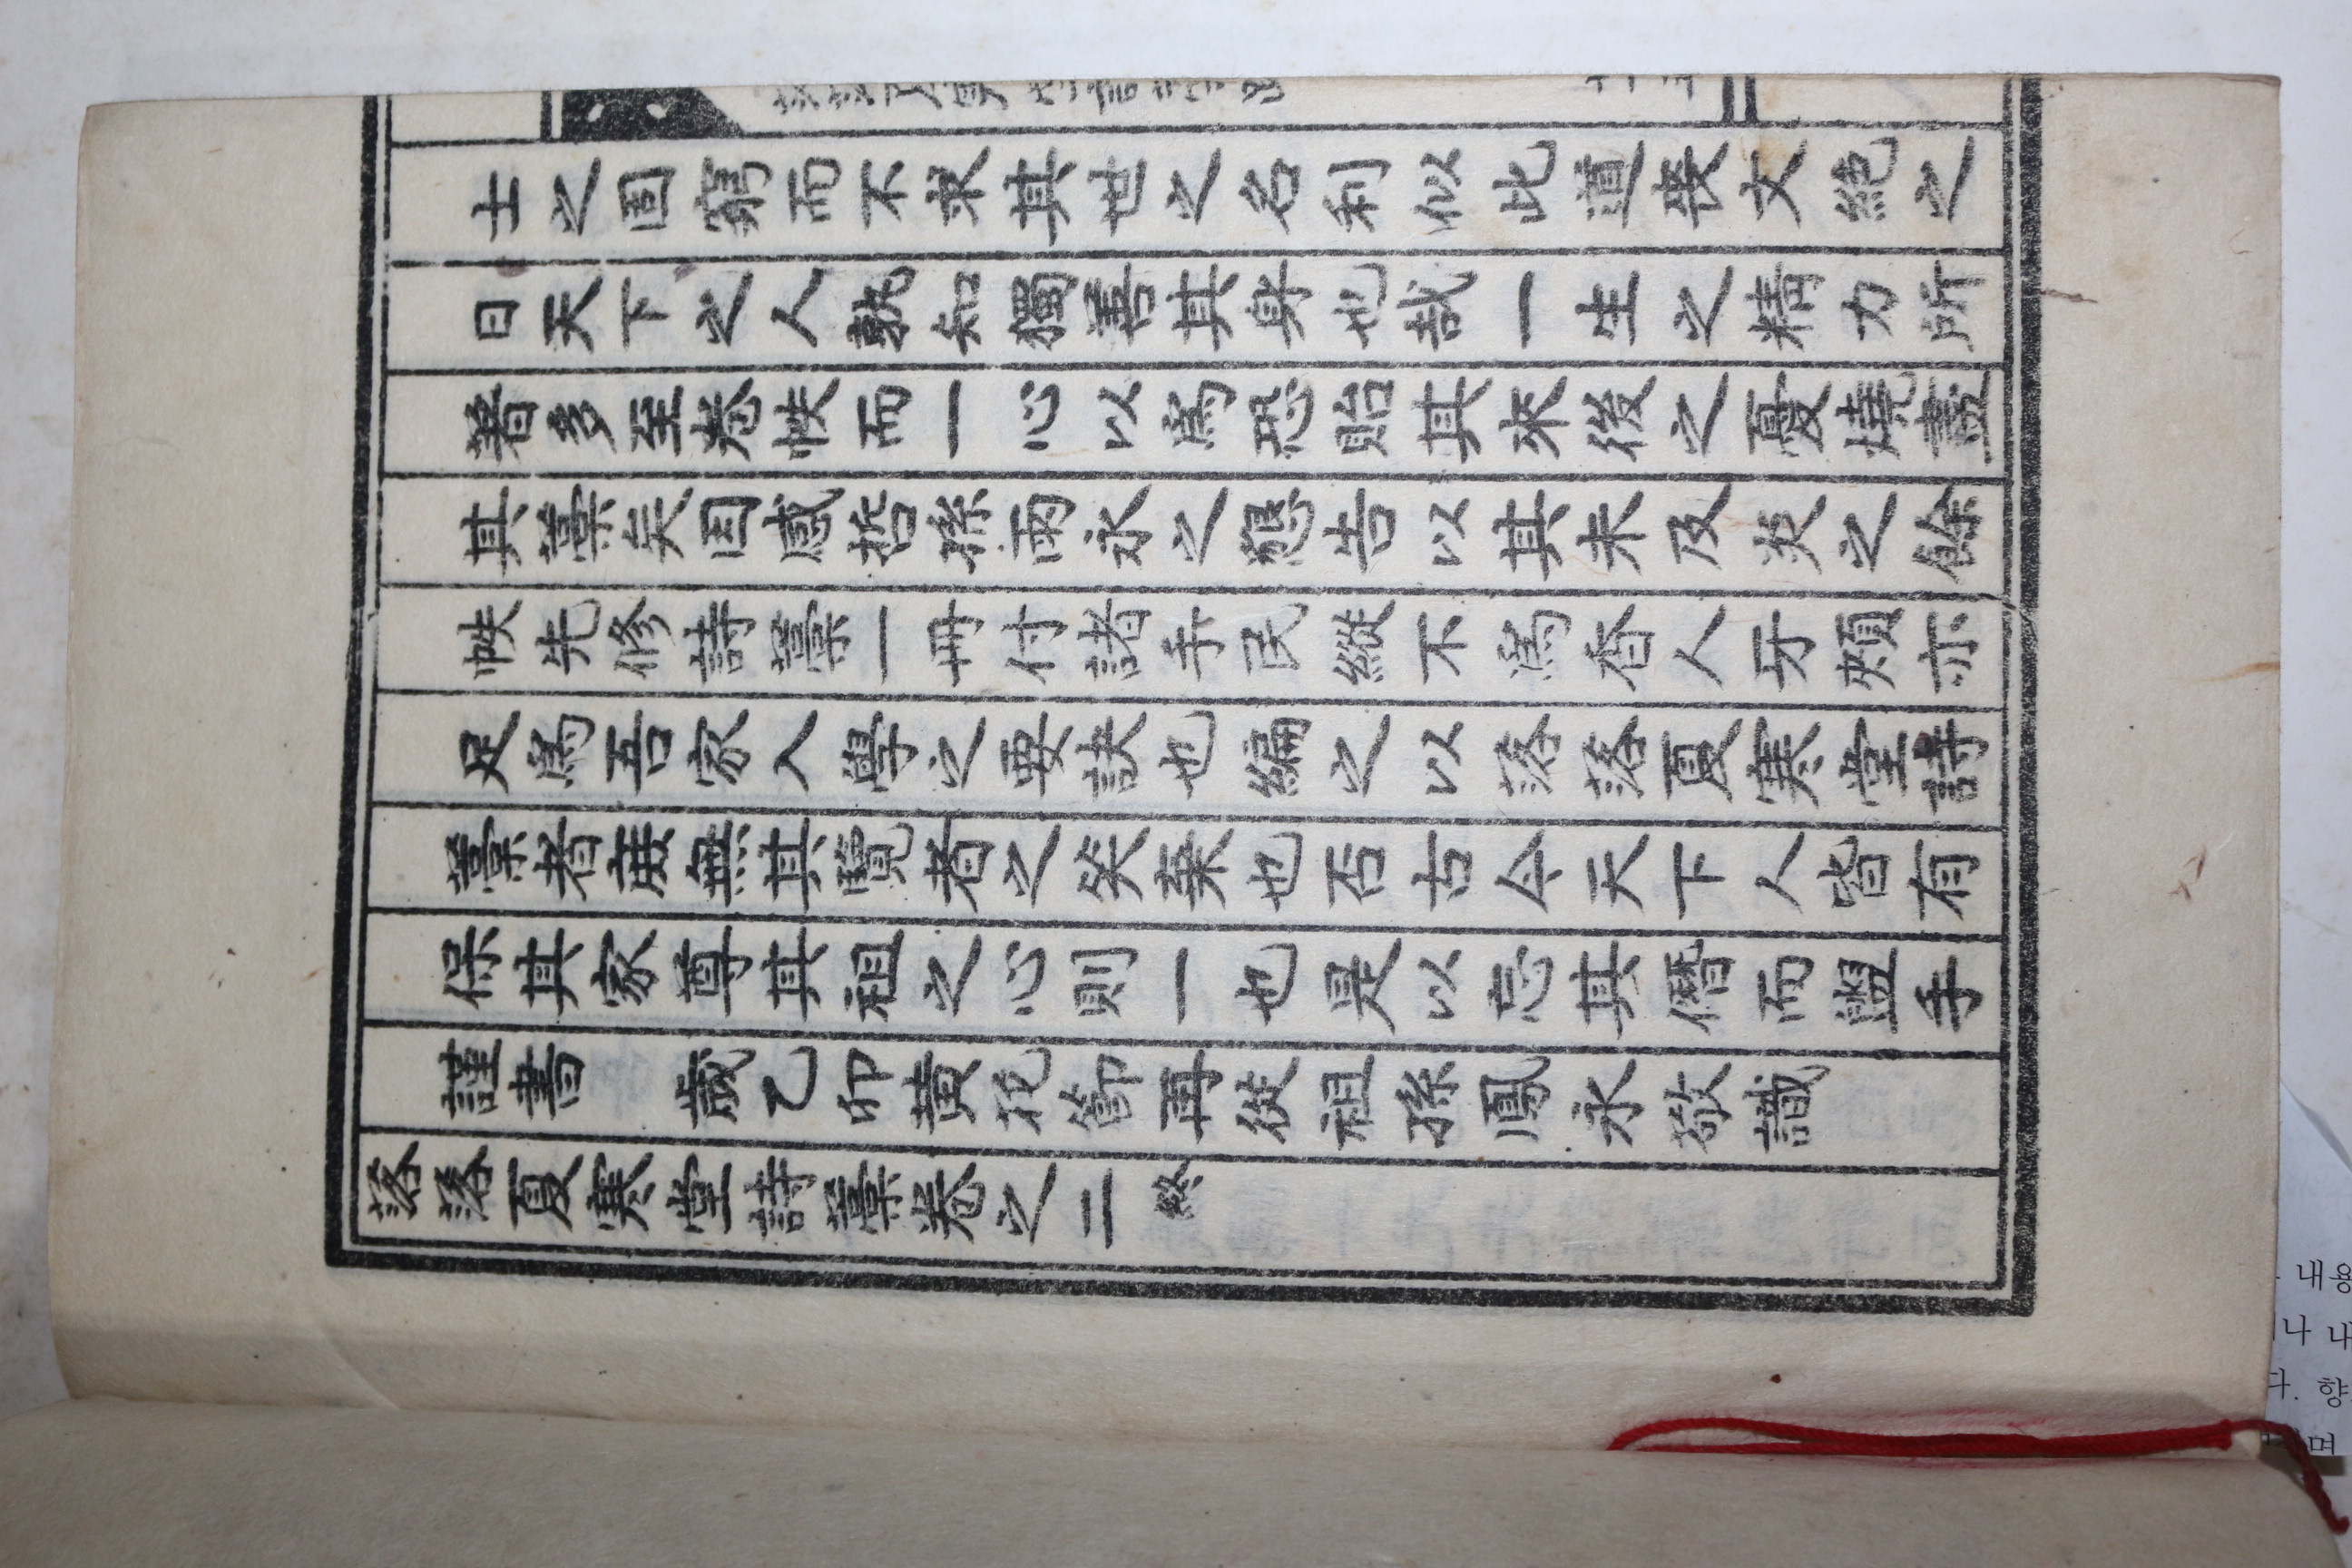 士之固窮而不求其世之名利似此道喪文絶之
日天下之人孰知獨善其身也哉一生之精力所
著多至卷帙而一心以爲恐貽其來後之憂燒盡
其藁矣因感哲孫雨永之懇告以其未及炎之餘
帙先修詩藁一冊付諸手民縱不爲香人牙頰亦
足爲吾家入學之要訣也編之以落落夏寒堂詩
藁者庻無其覽者之笑棄也否古今天下人皆有
保其家尊其祖之心則一也是以忘其僭而盥手
謹書 歲乙卯黄花節再從祖孫鳳永敬識
落落夏寒堂詩藁卷之二 終
내용
나 내
다. 향